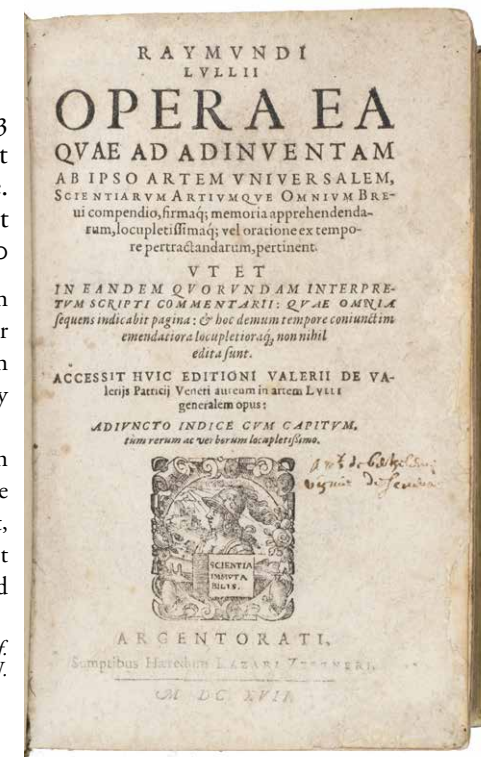 RAYMVNDI
LVLLII
OPERA EA
QVAE AD ADINVENTAM
AB IPSO ARTEM VNIVERSALEM,
SCIENTIARVM ARTIVMQVE OMNIVM BRE-
ui compendio, firmaq; memoria apprehendenda-
rum, locupletissimaq; vel oratione ex tempo-
re pertractandarum, pertinent.
VT ET
IN EANDEM QVORVNDAM INTERPRE-
TVM SCRIPTI COMMENTARII: QVAE OMNIA
sequens indicabit pagina: & hoc demum tempore coniunctim
emendatiora locupletioraq́, non nihil
edita sunt.
ACCESSIT HVIC EDITIONI VALERII DE VA-
lerijs Patricij Veneti aureum in artem LVLLI
generalem opus:
ADIVNCTO INDICE CVM CAPITVM,
tùm rerum ac verborum locupletissimo.
SCIENTIA
IMMVTA
BILIS.
ARGENTORATI,
Sumptibus Hæredum LAZARI ZETZNERI.
M DC XVII